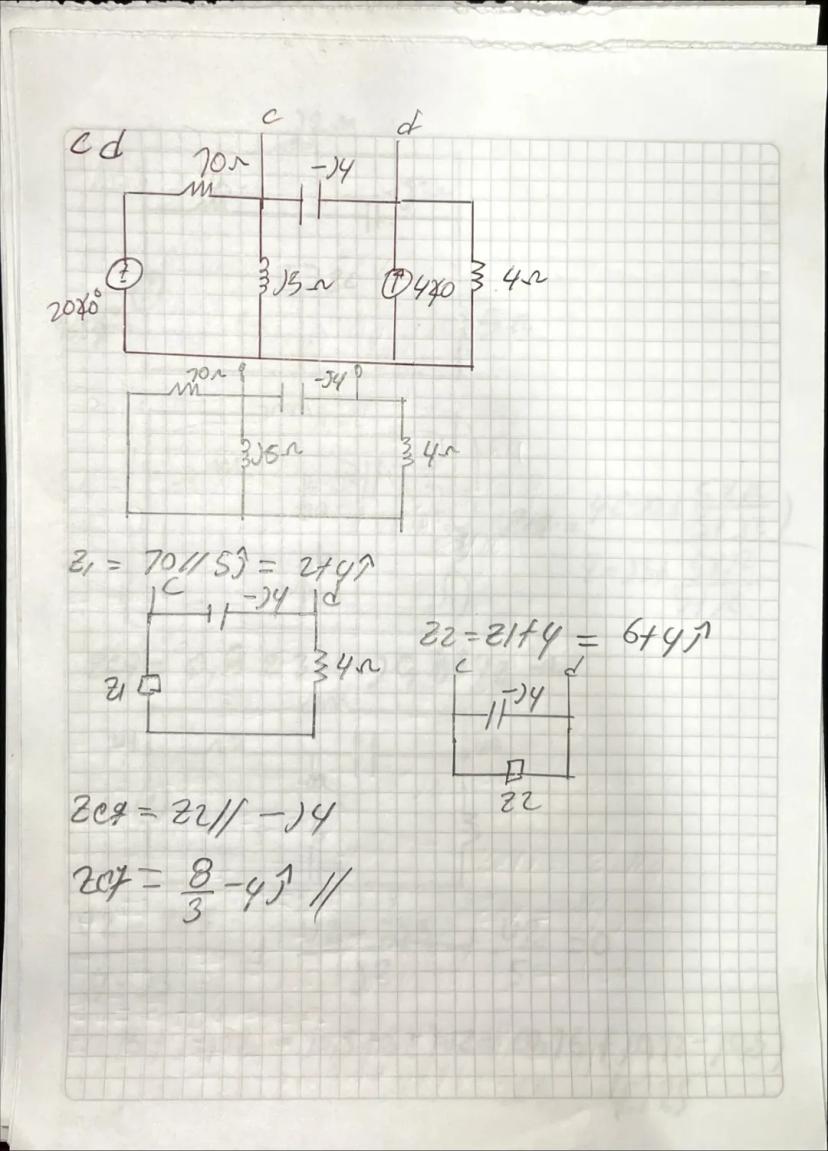 c d
c d
10Ω -J4
20∡0° J5Ω 4∡0 4Ω
10Ω -J4
J5Ω 4Ω
Z1 = 10//5j = 2+4j
c -J4 d
Z1 4Ω
Z2 = Z1+4 = 6+4j
c d
-J4
Z2
Zcd = Z2// -J4
Zcd = 8/3 -4j //